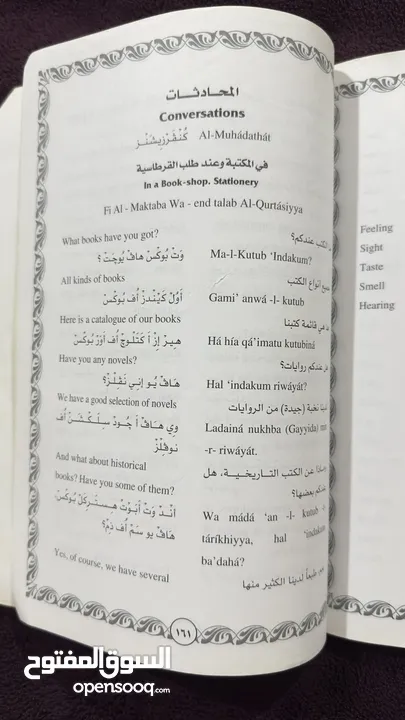 المحادثات
Conversations
كُنْفَرْزِيشَنْز Al-Muhádathát
في المكتبة وعند طلب القرطاسية
In a Book-shop. Stationery
Fi Al - Maktaba Wa - end talab Al-Qurtásiyya
What books have you got?
وَتْ بُوكْسْ هَافْ يُوجَتْ؟
All kinds of books
أوّلْ كَيْنْدْزْ أفْ بُوكْسْ
Here is a catalogue of our books
هِيرْ إزْ آ كَتَلُوجْ أفْ أوَرْ بُوكْسْ
Have you any novels?
هَافْ يُو إني نَڤِلْزْ؟
We have a good selection of novels
وِي هَافْ آ جُودْ سِلِكْشَنْ أفْ
نوفِلْزْ
And what about historical
books? Have you some of them?
أنْدْ وَتْ أبَوتْ هِسْتَرِكَلْ بُوكْسْ
هَافْ يو سَمْ أفْ ذِمْ؟
Yes, of course, we have several
الكتب عندكم؟
Ma-l-Kutub ‘Indakum?
جميع أنواع الكتب
Gami’ anwá -l- kutub
قائمة كتبنا
Há hía qá’imatu kutubiná
عندكم روايات؟
Hal ‘indakum riwáyát?
لدينا نخبة (جيدة) من الروايات
Ladainá nukhba (Gayyida) mi
-r- riwáyát.
عن الكتب التاريخية، هل
بعضها؟
Wa mádá ‘an -l- kutub -t-
táríkhiyya, hal ‘indakum
ba’dahá?
طبعاً لدينا الكثير منها
١٦١
Feeling
Sight
Taste
Smell
Hearing
السوق المفتوح
opensooq.com